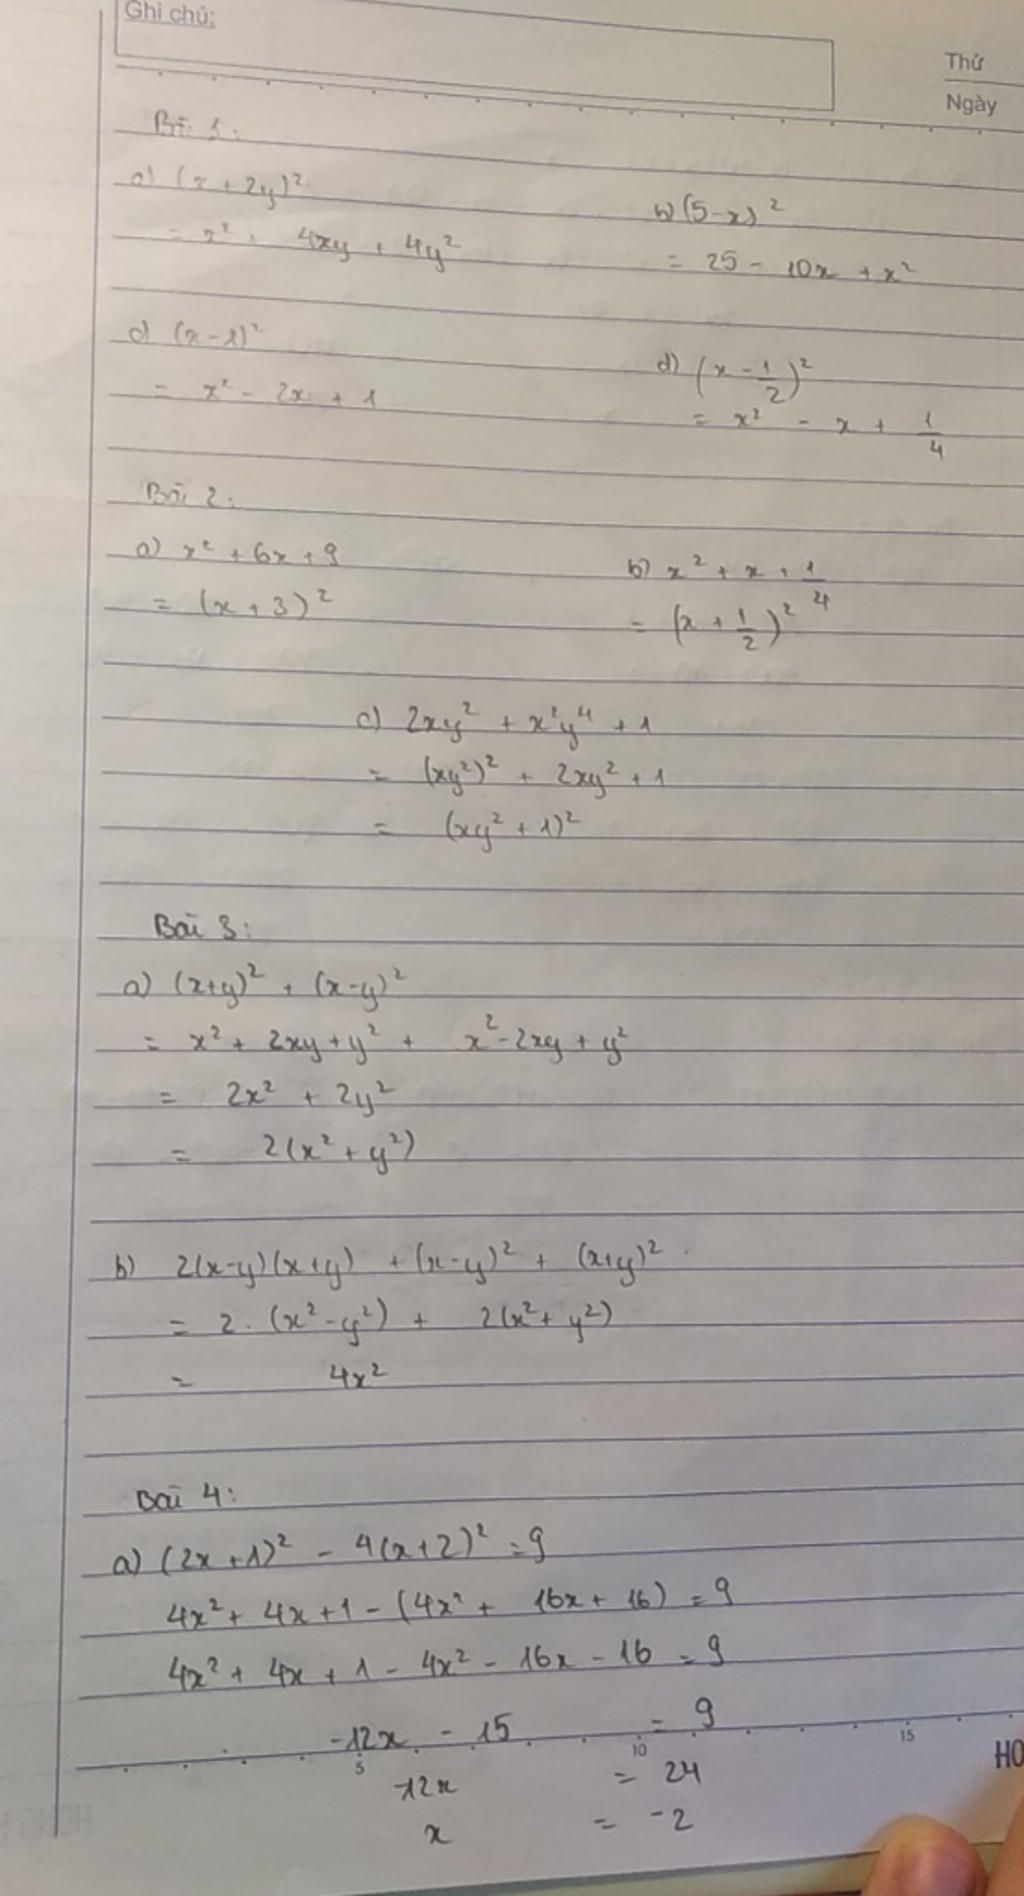 Ghi chú:
Thứ
Ngày
Bài 1:
a) (x + 2y)²
= x² + 4xy + 4y²
b) (5-x)²
= 25 - 10x + x²
c) (x - 1)²
= x² - 2x + 1
d) (x - 1/2)²
= x² - x + 1/4
Bài 2:
a) x² + 6x + 9
= (x + 3)²
b) x² + x + 1/4
= (x + 1/2)²
c) 2xy² + x²y⁴ + 1
= (xy²)² + 2xy² + 1
= (xy² + 1)²
Bài 3:
a) (x+y)² + (x-y)²
= x² + 2xy + y² + x² - 2xy + y²
= 2x² + 2y²
= 2(x² + y²)
b) 2(x-y)(x+y) + (x-y)² + (x+y)²
= 2. (x² - y²) + 2(x² + y²)
= 4x²
Bài 4:
a) (2x + 1)² - 4(x+2)² = 9
4x² + 4x + 1 - (4x² + 16x + 16) = 9
4x² + 4x + 1 - 4x² - 16x - 16 = 9
-12x - 15 = 9
5 10 15
HO
-12x = 24
x = -2